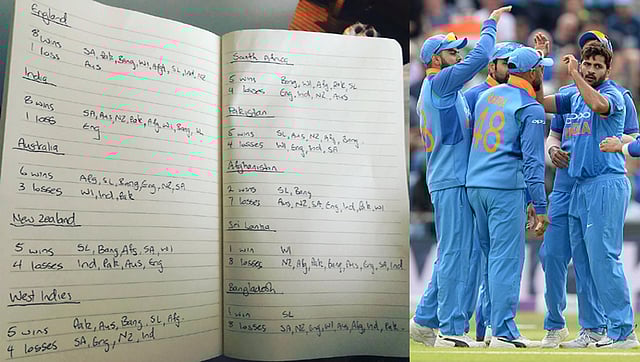 England
8 wins SA, Pak, Bang, WI, Afg, SL, Ind, NZ
1 loss Aus
India
8 wins SA, Aus, NZ, Pak, Afg, WI, Bang, SL
1 loss Eng
Australia
6 wins Afg, SL, Bang, Eng, NZ, SA
3 losses WI, Ind, Pak
New Zealand
5 wins SL, Bang, Afg, SA, WI
4 losses Ind, Pak, Aus, Eng
West Indies
5 wins Pak, Aus, Bang, SL, Afg.
4 losses SA, Eng, NZ, Ind
South Africa
5 wins Bang, WI, Afg, Pak, SL
4 losses Eng, Ind, NZ, Aus
Pakistan
5 wins SL, Aus, NZ, Afg, Bang
4 losses WI, Eng, Ind, SA
Afghanistan
2 wins SL, Bang
7 losses Aus, NZ, SA, Eng, Ind, Pak, WI
Sri Lanka
1 win WI
8 losses NZ, Afg, Pak, Bang, Aus, Eng, SA, Ind
Bangladesh
1 win SL
8 losses SA, NZ, Eng, WI, Aus, Afg, Ind, Pak.
48
oppo
INDIA